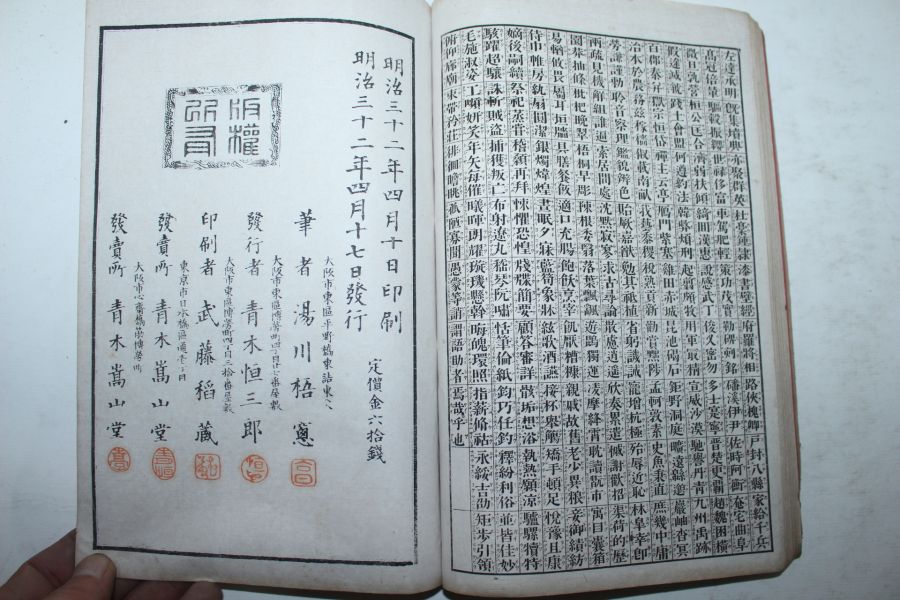 左達承明既集墳典亦聚群英杜稾鍾隷漆書壁經府羅將相路俠槐卿戸封八縣家給千兵
高冠陪輦驅轂振纓世祿侈富車駕肥輕策功茂實勒碑刻銘磻溪伊尹佐時阿衡奄宅曲阜
微旦孰營桓公匡合濟弱扶傾綺囘漢惠說感武丁俊乂密勿多士寔寧晉楚更覇趙魏困橫
假途滅虢踐土會盟何遵約法韓弊煩刑起翦頗牧用軍最精宣威沙漠馳譽丹靑九州禹跡
百郡秦幷嶽宗恒岱禪主云亭鴈門紫塞雞田赤城昆池碣石鉅野洞庭曠遠緜邈巖岫杳冥
治本於農務茲稼穡俶載南畝我藝黍稷稅熟貢新勸賞黜陟孟軻敦素史魚秉直庶幾中庸
勞謙謹勅聆音察理鑑貌辨色貽厥嘉猷勉其祗植省躬譏誡寵增抗極殆辱近恥林皐幸卽
兩疏見機解組誰逼索居閑處沈默寂寥求古尋論散慮逍遙欣奏累遣慼謝歡招渠荷的歷
園莽抽條枇杷晚翠梧桐早彫陳根委翳落葉飄颻遊鵾獨運凌摩絳霄耽讀翫市寓目囊箱
易輶攸畏屬耳垣牆具膳餐飯適口充腸飽飫烹宰飢厭糟糠親戚故舊老少異糧妾御績紡
侍巾帷房紈扇圓潔銀燭煒煌晝眠夕寐藍筍象牀絃歌酒讌接杯舉觴矯手頓足悅豫且康
嫡後嗣續祭祀蒸嘗稽顙再拜悚懼恐惶牋牒簡要顧答審詳骸垢想浴執熱願凉驢騾犢特
駭躍超驤誅斬賊盜捕獲叛亡布射遼丸嵇琴阮嘯恬筆倫紙鈞巧任釣釋紛利俗並皆佳妙
毛施淑姿工嚬姸笑年矢每催曦暉朗耀璇璣懸斡晦魄環照指薪脩祜永綏吉劭矩步引領
俯仰廊廟束帶矜莊徘徊瞻眺孤陋寡聞愚蒙等誚謂語助者焉哉乎也
明治三十二年四月十日印刷
明治三十二年四月十七日發行
定價金六拾錢
筆者 湯川梧窻
發行者 青木恒三郎
印刷者 武藤稻藏
東京市日本橋區
發賣所 青木嵩山堂
大阪市心齋橋筋博勞町
發賣所 青木嵩山堂
版權所有